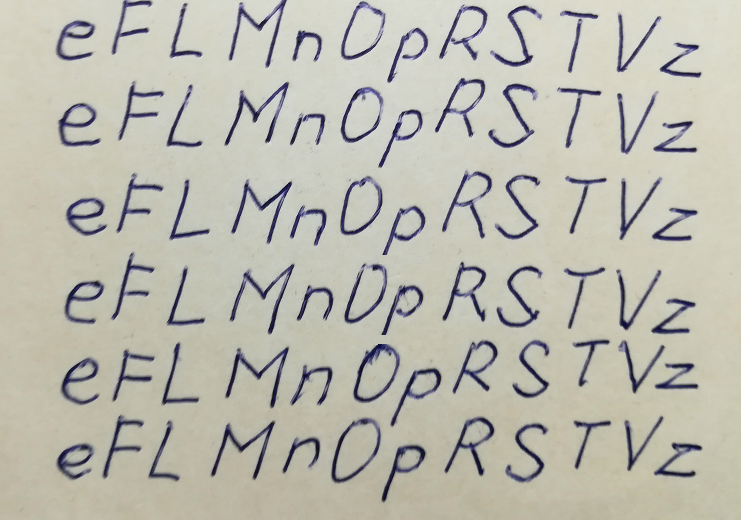 eFLMnOpRSTVz
eFLMnOpRSTVz
eFLMnOpRSTVz
eFLMnOpRSTVz
eFLMnOpRSTVz
eFLMnOpRSTVz